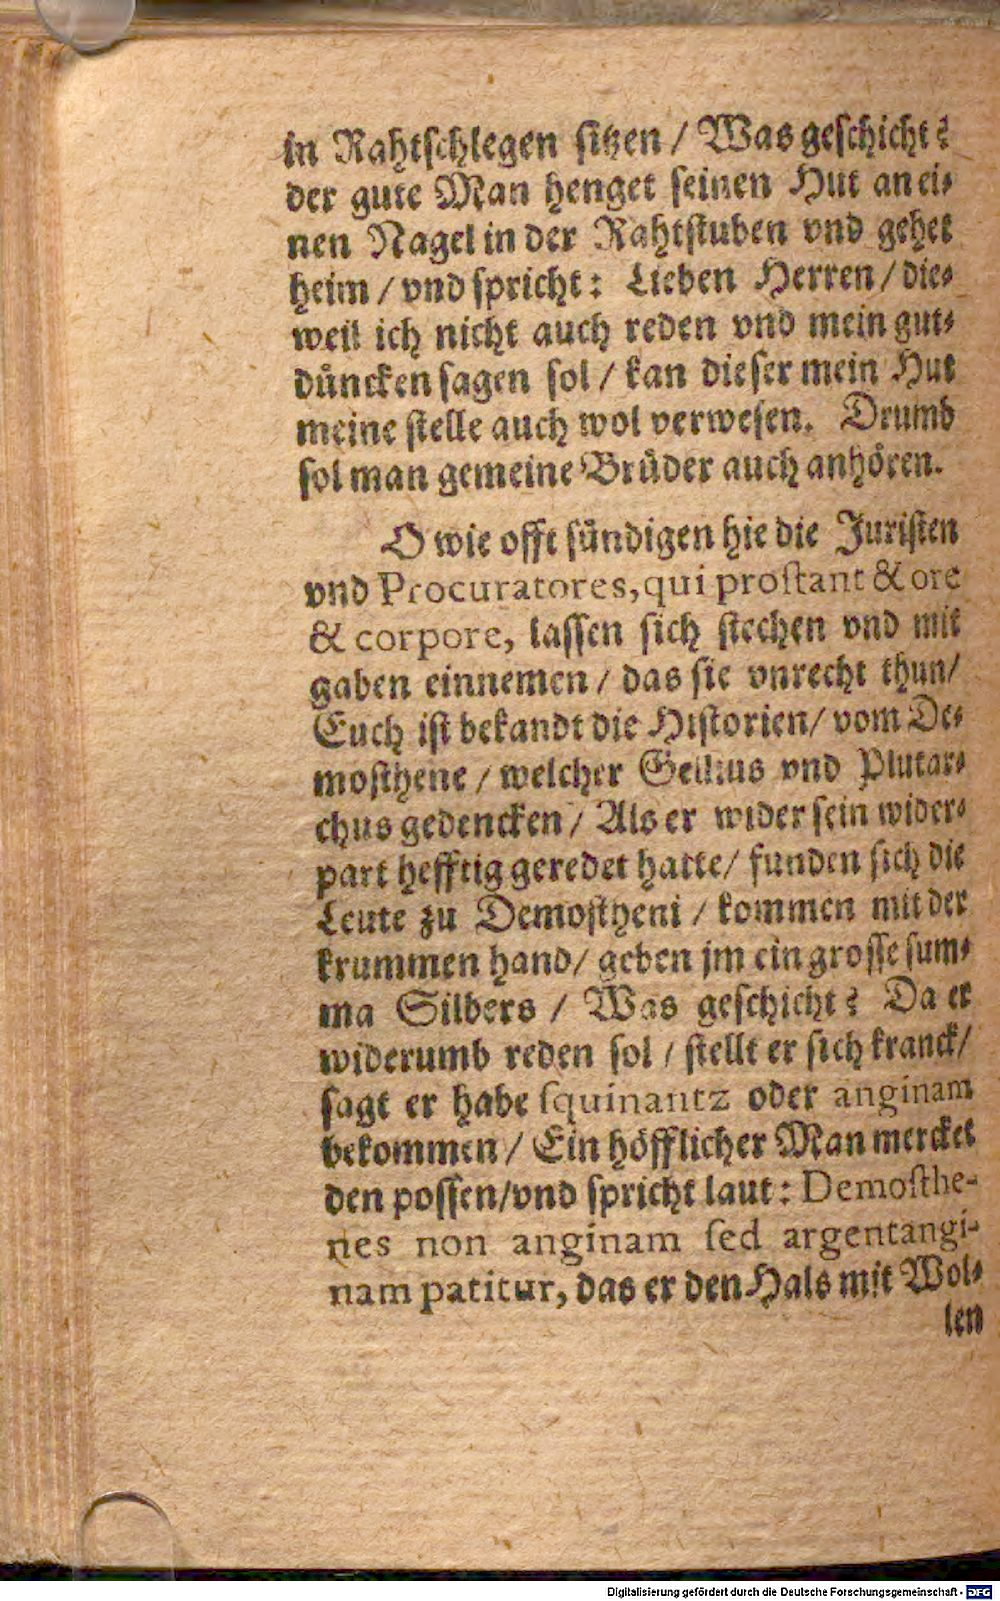 in Rahtschlegen sitzen / Was geschicht?
der gute Man henget seinen Hut an ei⸗
nen Nagel in der Rahtstuben vnd gehet
heim / vnd spricht: Lieben Herren / die⸗
weil ich nicht auch reden vnd mein gut⸗
düncken sagen sol / kan dieser mein Hut
meine stelle auch wol verwesen. Drumb
sol man gemeine Brüder auch anhören.
O wie offt sündigen hie die Juristen
vnd Procuratores, qui prostant & ore
& corpore, lassen sich stechen vnd mit
gaben einnemen / das sie vnrecht thun/
Euch ist bekandt die Historien/ vom De⸗
mosthene / welcher Gellius vnd Plutar⸗
chus gedencken / Als er wider sein wider⸗
part hefftig geredet hatte/ funden sich die
Leute zu Demostheni / kommen mit der
krummen hand/ geben jm ein grosse sum⸗
ma Silbers / Was geschicht? Da er
widerumb reden sol / stellt er sich kranck/
sagt er habe squinantz oder anginam
bekommen / Ein höfflicher Man mercket
den possen/vnd spricht laut: Demosthe-
nes non anginam sed argentangi-
nam patitur, das er den Hals mit Wol⸗
len
Digitalisierung gefördert durch die Deutsche Forschungsgemeinschaft - DFG